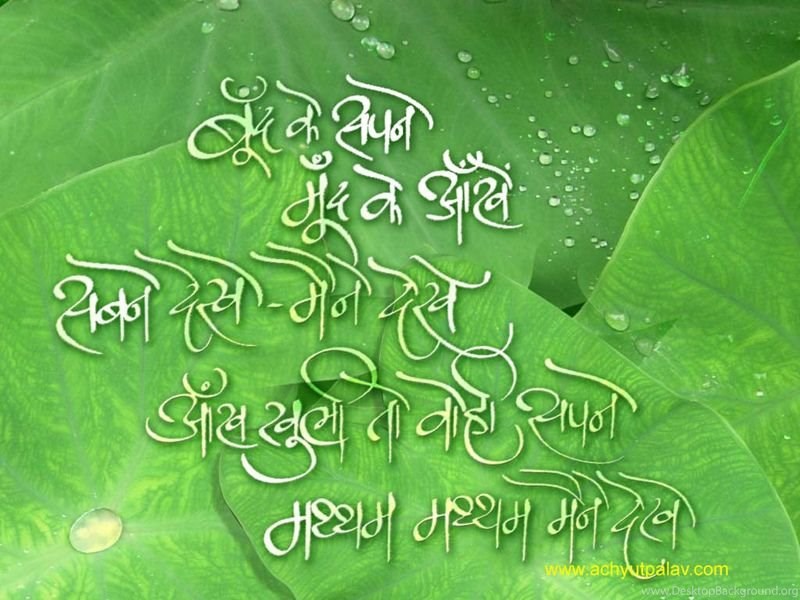 बूँद के सपने
मूँद के आँखें
सबने देखे - मैंने देखे
आँख खुली तो वोही सपने
मध्यम मध्यम मैंने देखे
www.achyutpalav.com
www.DesktopBackground.org